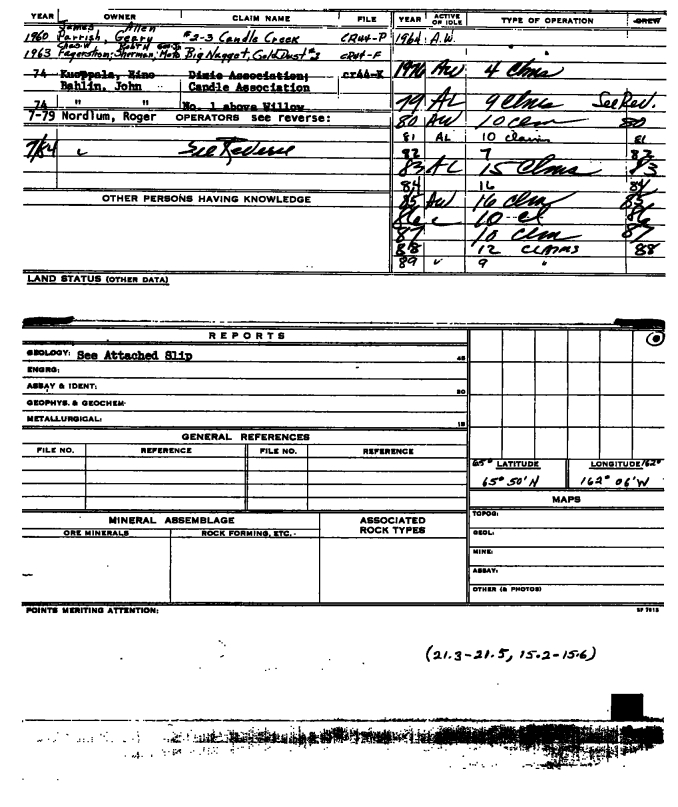 YEAR OWNER CLAIM NAME FILE YEAR ACTIVE OR IDLE TYPE OF OPERATION CREW
James Allen
1960 Parrish Geary #2-3 Candle Creek CR44-P 1964 A.W. " "
1963 Fagerstrom; Sherman; Big Nugget, Gold Dust CR44-F
74 Kuoppala, Eino Dixie Association; cr44-K 1976 AW 4 Clms
Bahlin, John Candle Association
74 " " No. 1 above Willow 79 AL 9 Clms See Rev.
7-79 Nordlum, Roger OPERATORS see reverse: 80 AW 10 clm 80
81 AL 10 claims 81
7/84 See Reverse 82 7 82
83 AL 15 Clms 83
84 16 84
OTHER PERSONS HAVING KNOWLEDGE 85 AW 16 clm 85
86 10 cl 86
87 10 clm 87
88 12 CLAIMS 88
89 9 "
LAND STATUS (OTHER DATA)
REPORTS
GEOLOGY: See Attached Slip
ENGRG:
ASSAY & IDENT:
GEOPHYS. & GEOCHEM:
METALLURGICAL:
GENERAL REFERENCES
FILE NO. REFERENCE FILE NO. REFERENCE
65° LATITUDE LONGITUDE 162°
65° 50' N 162° 06' W
MAPS
MINERAL ASSEMBLAGE ASSOCIATED ROCK TYPES TOPOG:
ORE MINERALS ROCK FORMING, ETC. GEOL:
MINE:
ASSAY:
OTHER (& PHOTOS)
POINTS MERITING ATTENTION:
(21.3-21.5, 15.2-15.6)